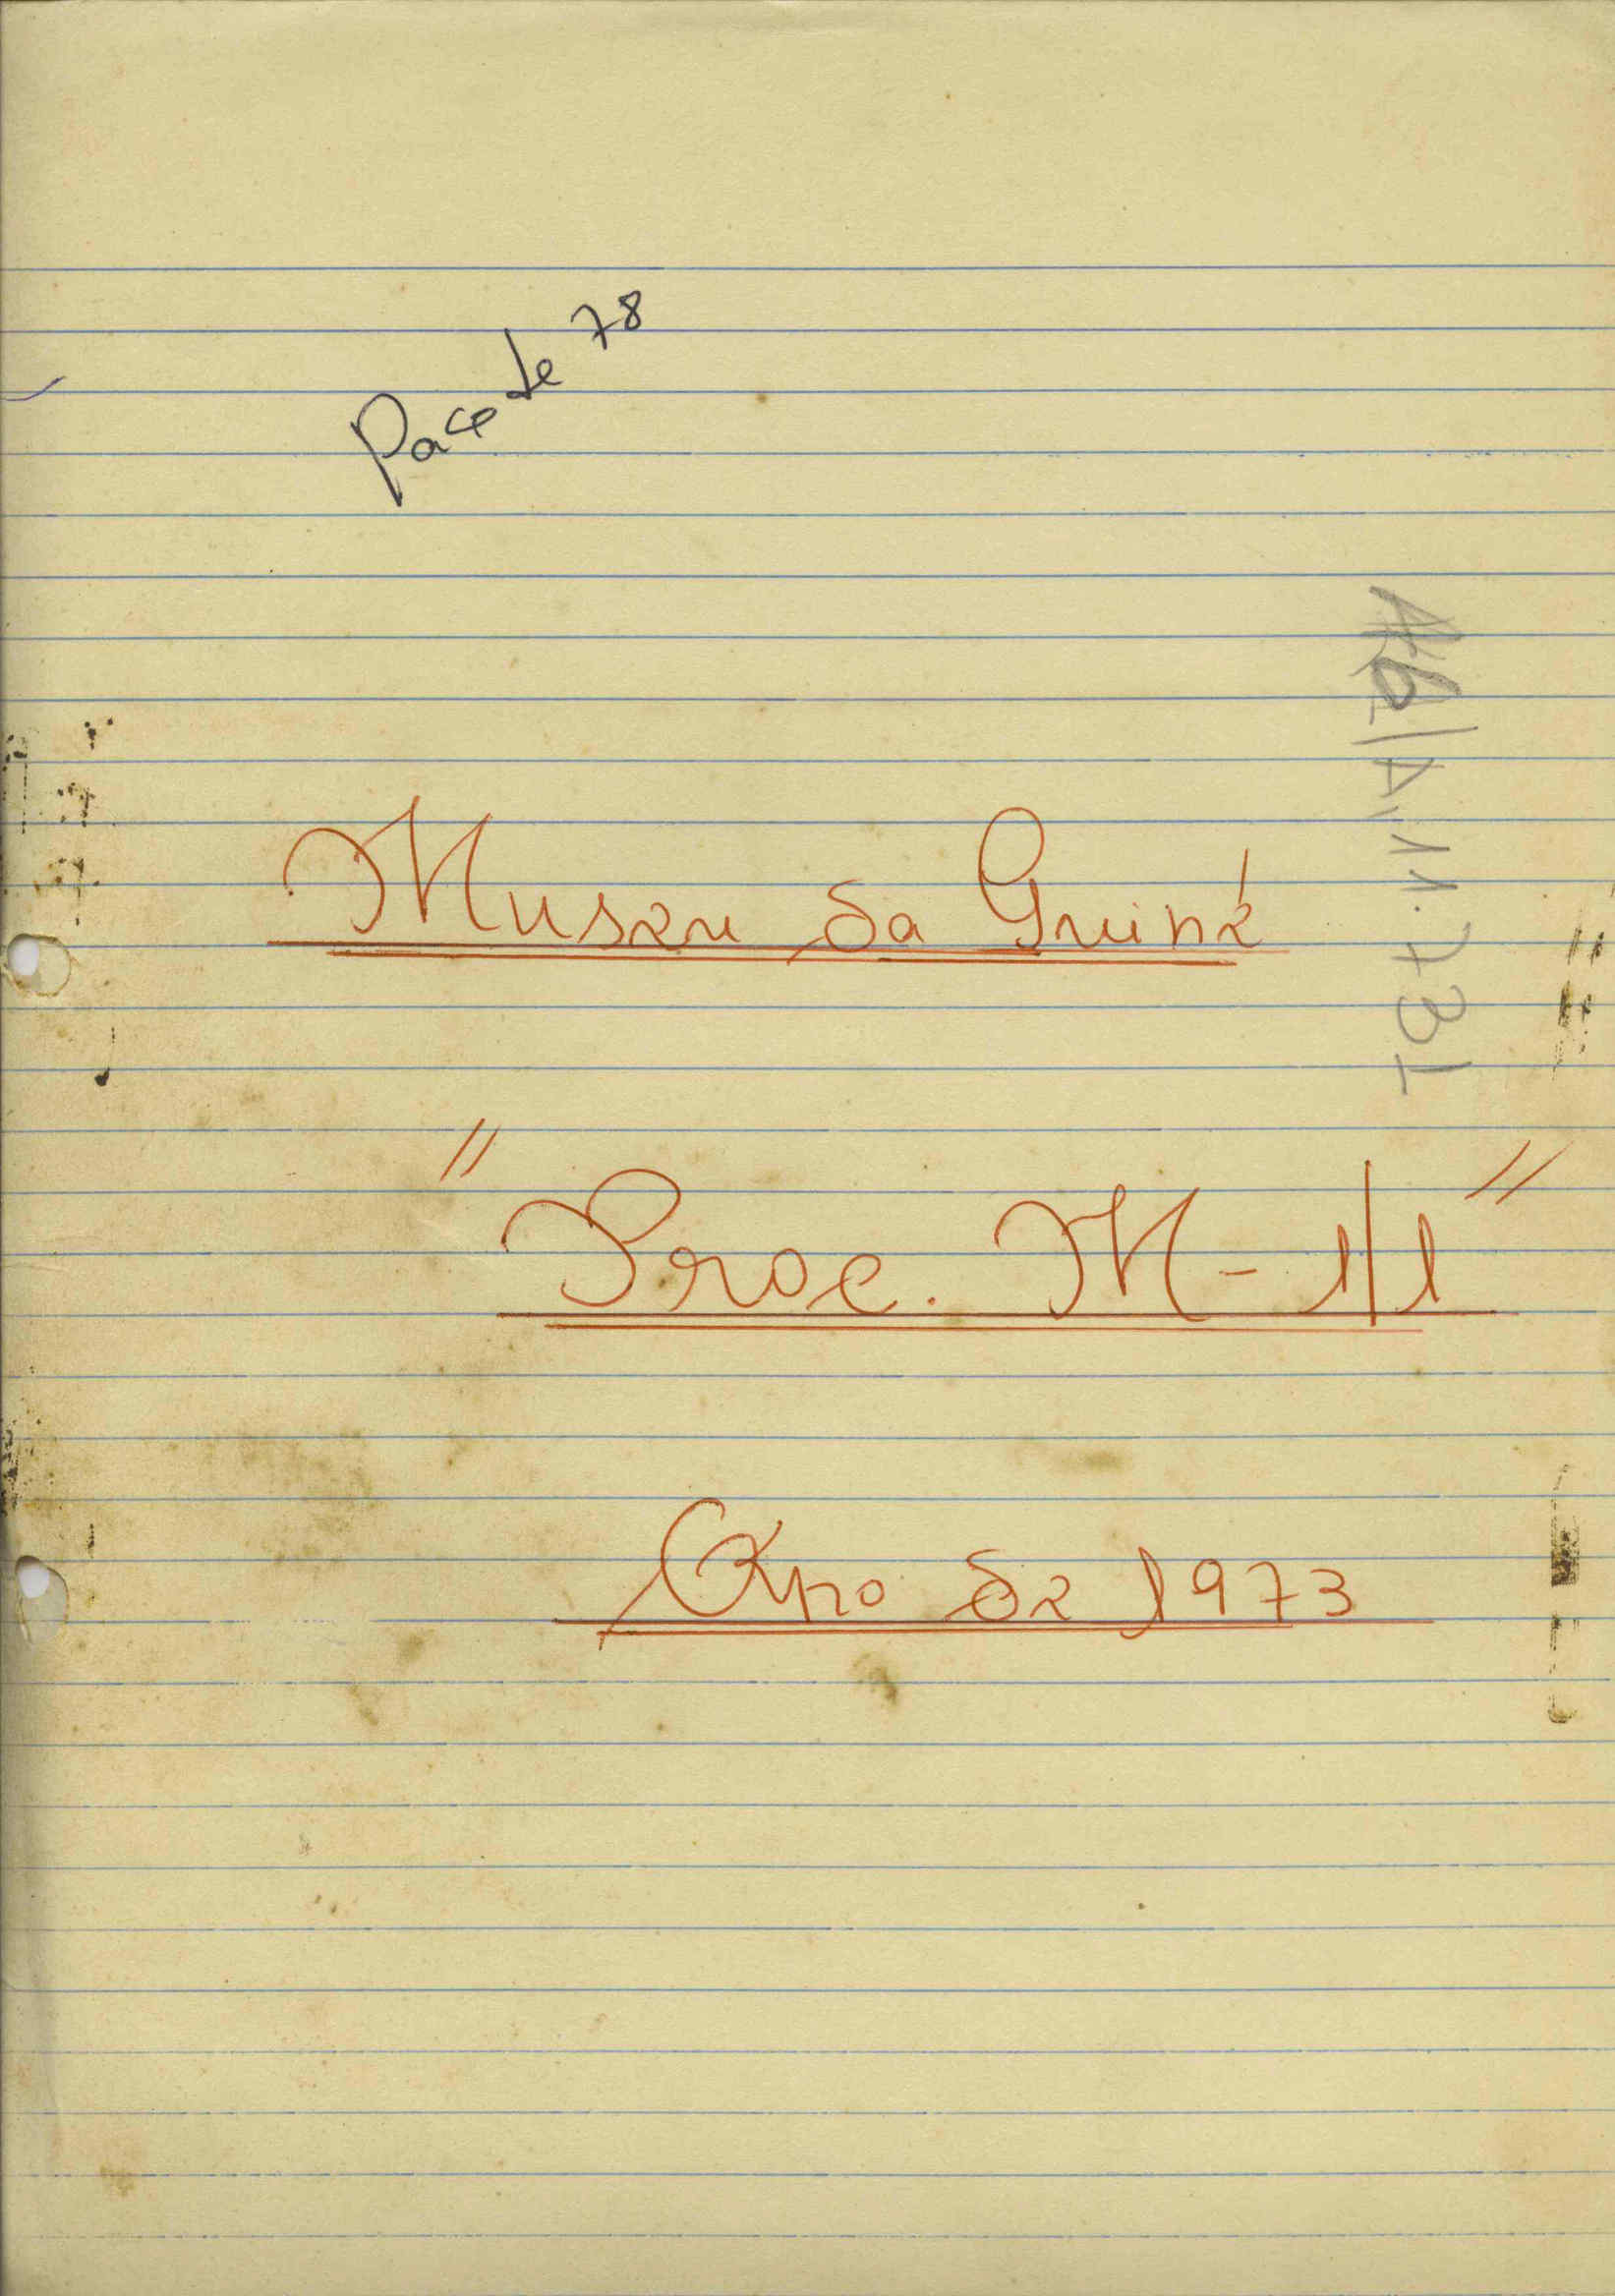 Pacote 78
Museu da Guiné
"Proc. M-1/1"
Ano de 1973